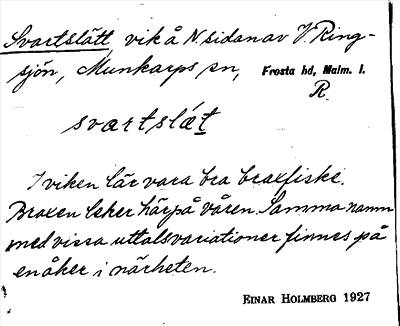 Svartslätt, vik å N. sidan av V. Ring-
sjön, Munkarps sn, Frosta hd, Malm. l.
R.
svartslǽt
I viken lär vara bra braxfiske.
Braxen leker här på våren. Samma namn
med vissa uttalsvariationer finnes på
en åker i närheten.
EINAR HOLMBERG 1927